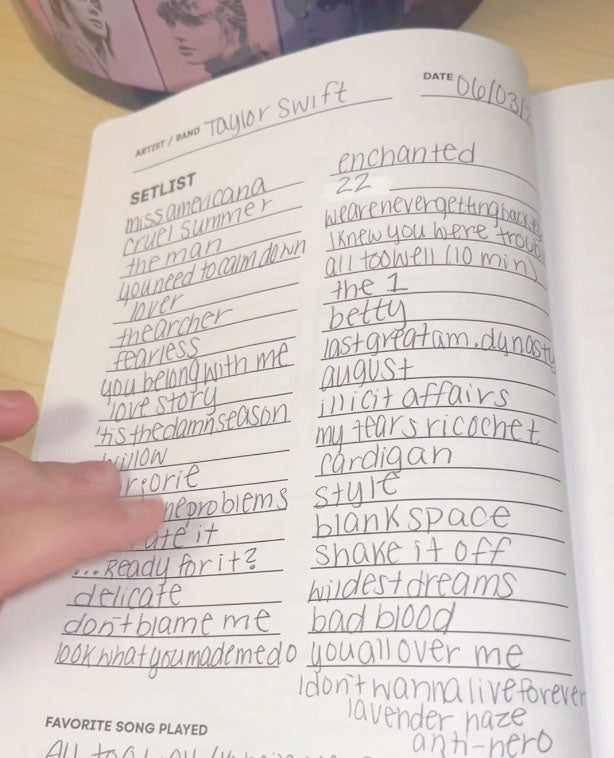 DATE 06/03/
ARTIST / BAND Taylor Swift
SETLIST
miss americana
cruel summer
the man
you need to calm down
lover
the archer
fearless
you belong with me
love story
'tis the damn season
willow
rjorie
ne problems
ate it
...Ready for it?
delicate
don't blame me
look what you made me do
enchanted
22
we are never getting back
I knew you were troub
all too well (10 min)
the 1
betty
last great am. dynasty
august
illicit affairs
my tears ricochet
cardigan
style
blank space
shake it off
wildest dreams
bad blood
you all over me
I don't wanna live forever
lavender haze
anti-hero
FAVORITE SONG PLAYED
All too